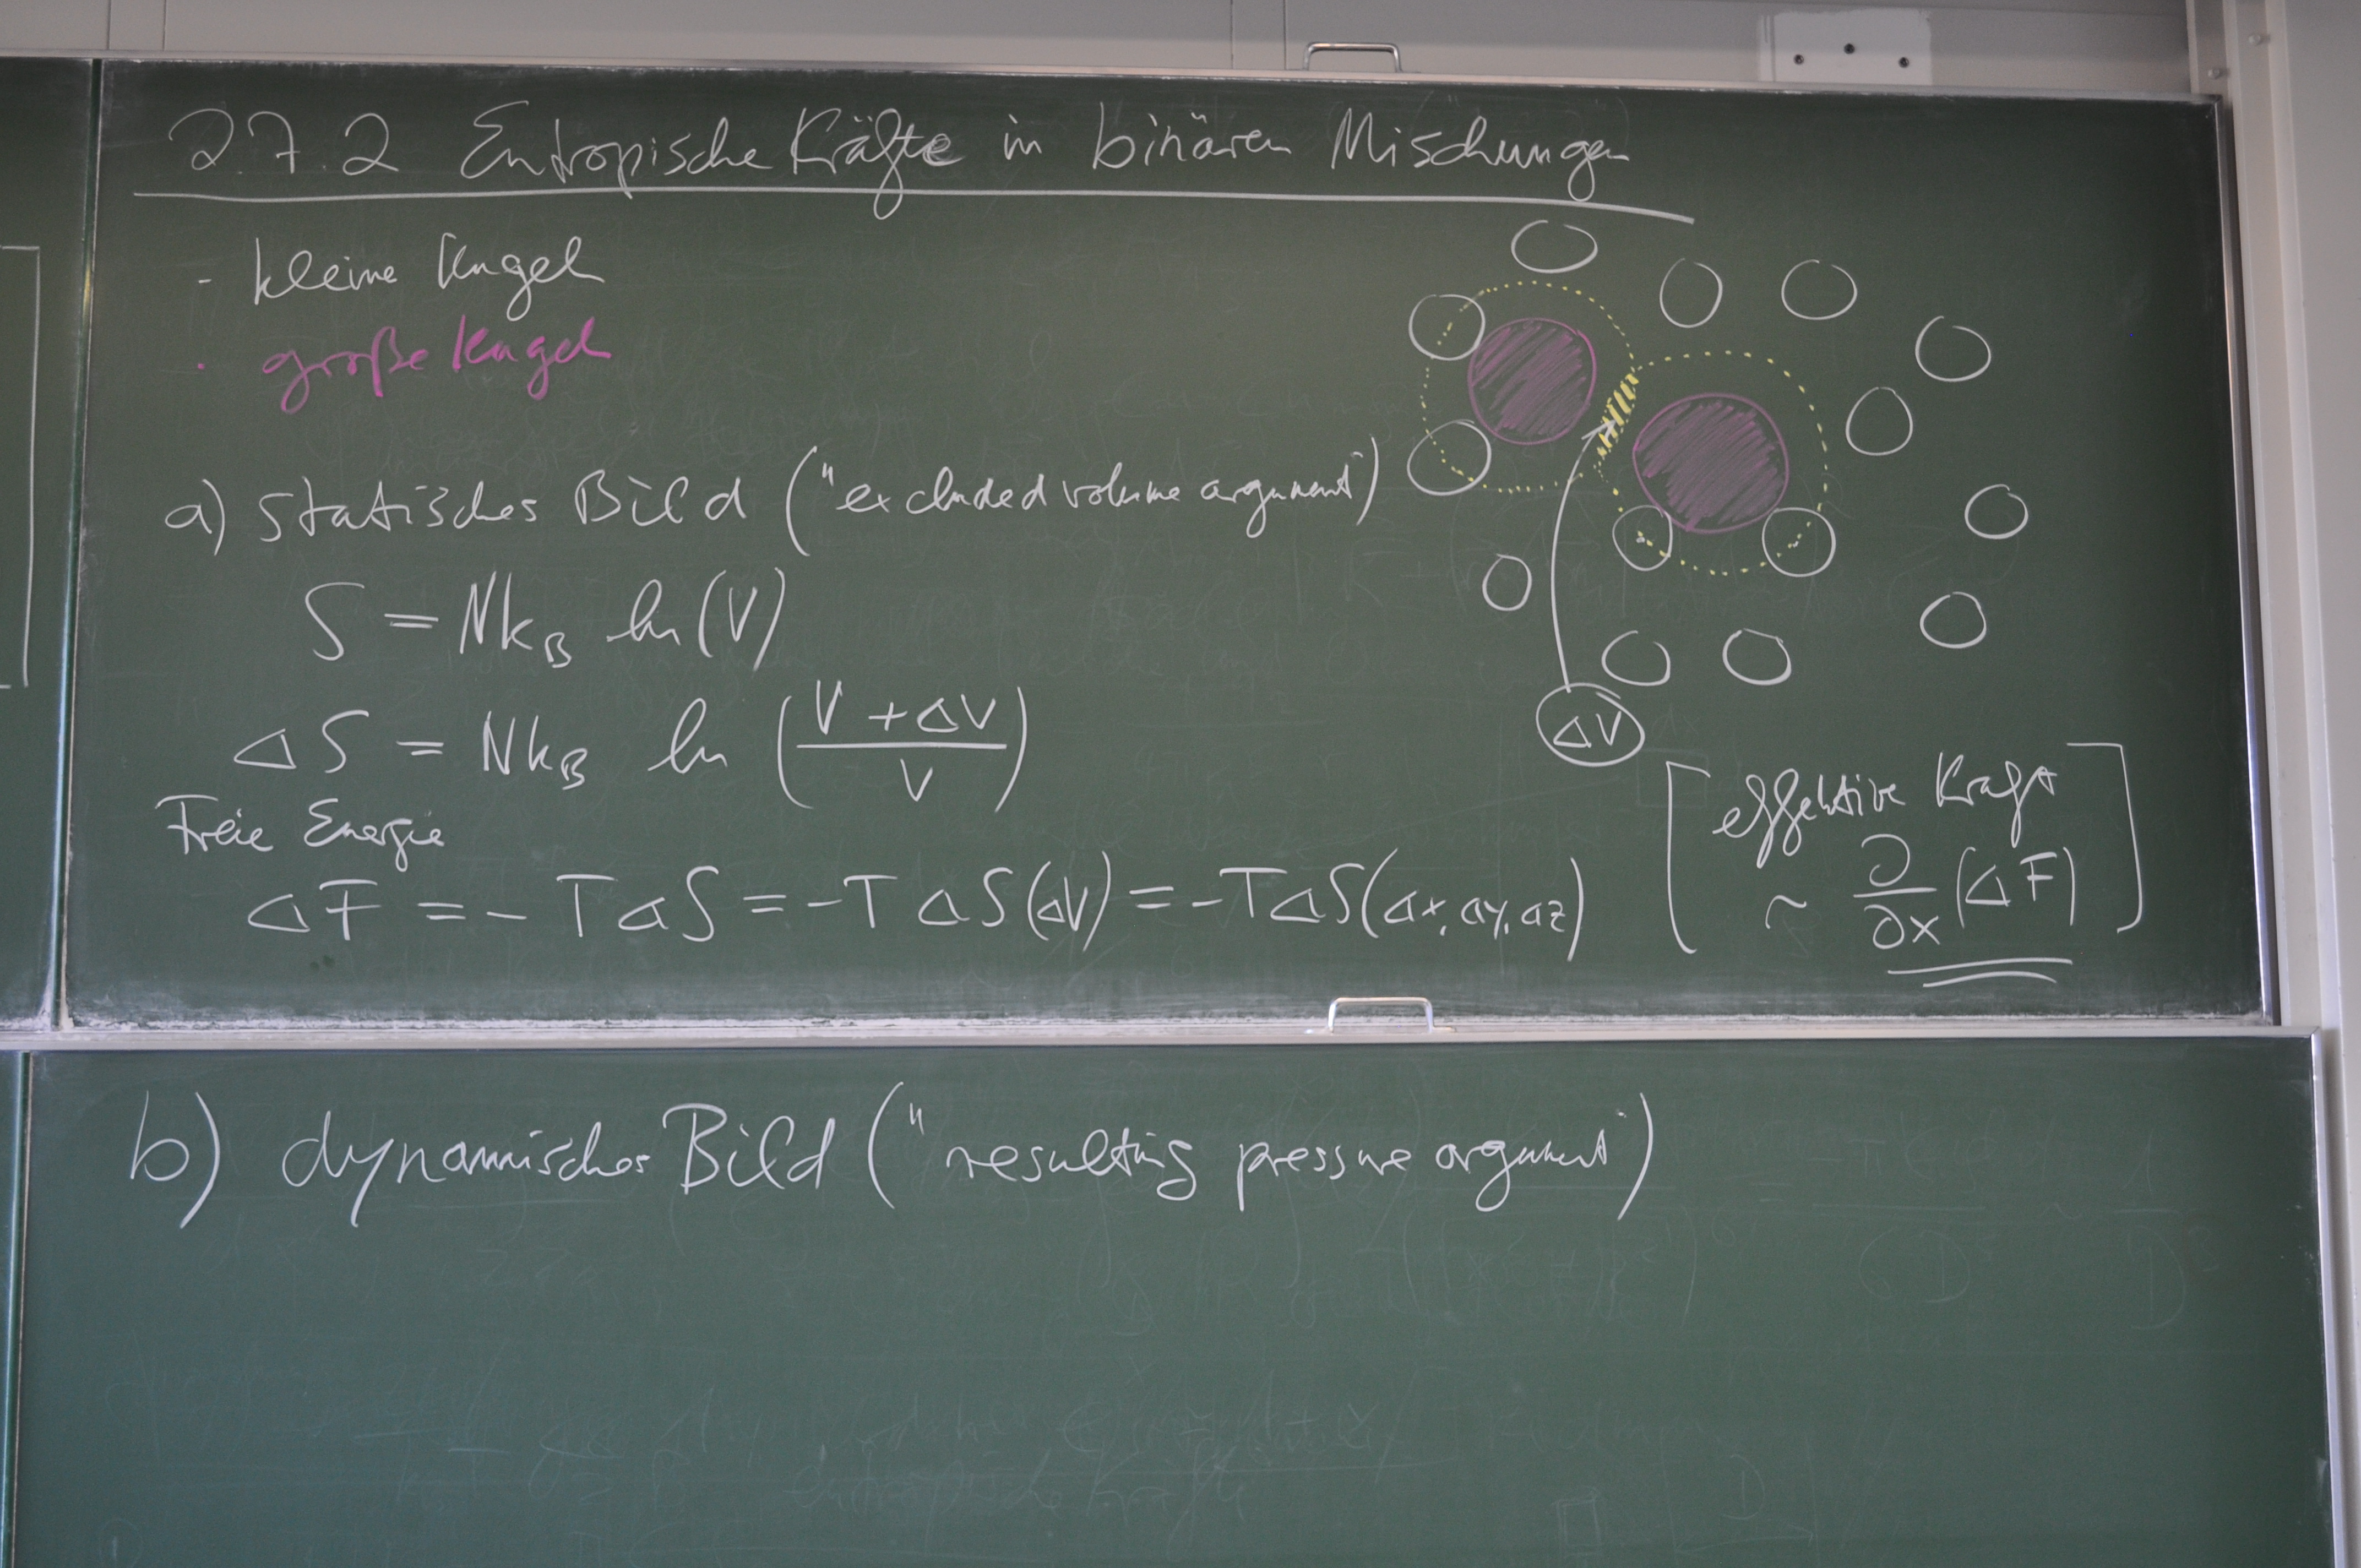 2.7.2 Entropische Kräfte in binären Mischungen
- kleine Kugel
· große Kugel
a) statisches Bild ("excluded volume argument")
S = Nk_B ln(V)
ΔS = Nk_B ln((V + ΔV)/V)
ΔV
Freie Energie
ΔF = - TΔS = -TΔS(ΔV) = -TΔS(Δx, Δy, Δz)
[effektive Kraft
~ ∂/∂x (ΔF)]
b) dynamisches Bild ("resulting pressure argument")